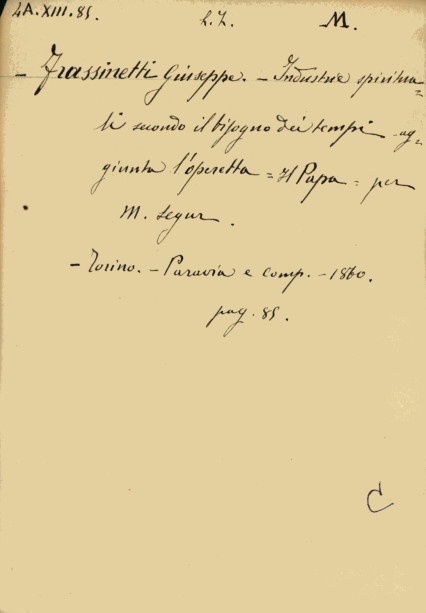 4A.XIII.85. L.I. M.
- Frassinetti Giuseppe. - Industrie spiritua=
li secondo il bisogno dei tempi - ag=
giunta l'operetta = Il Papa = per
M. Segur.
- Torino. - Paravia e comp. - 1860.
pag. 85.
C